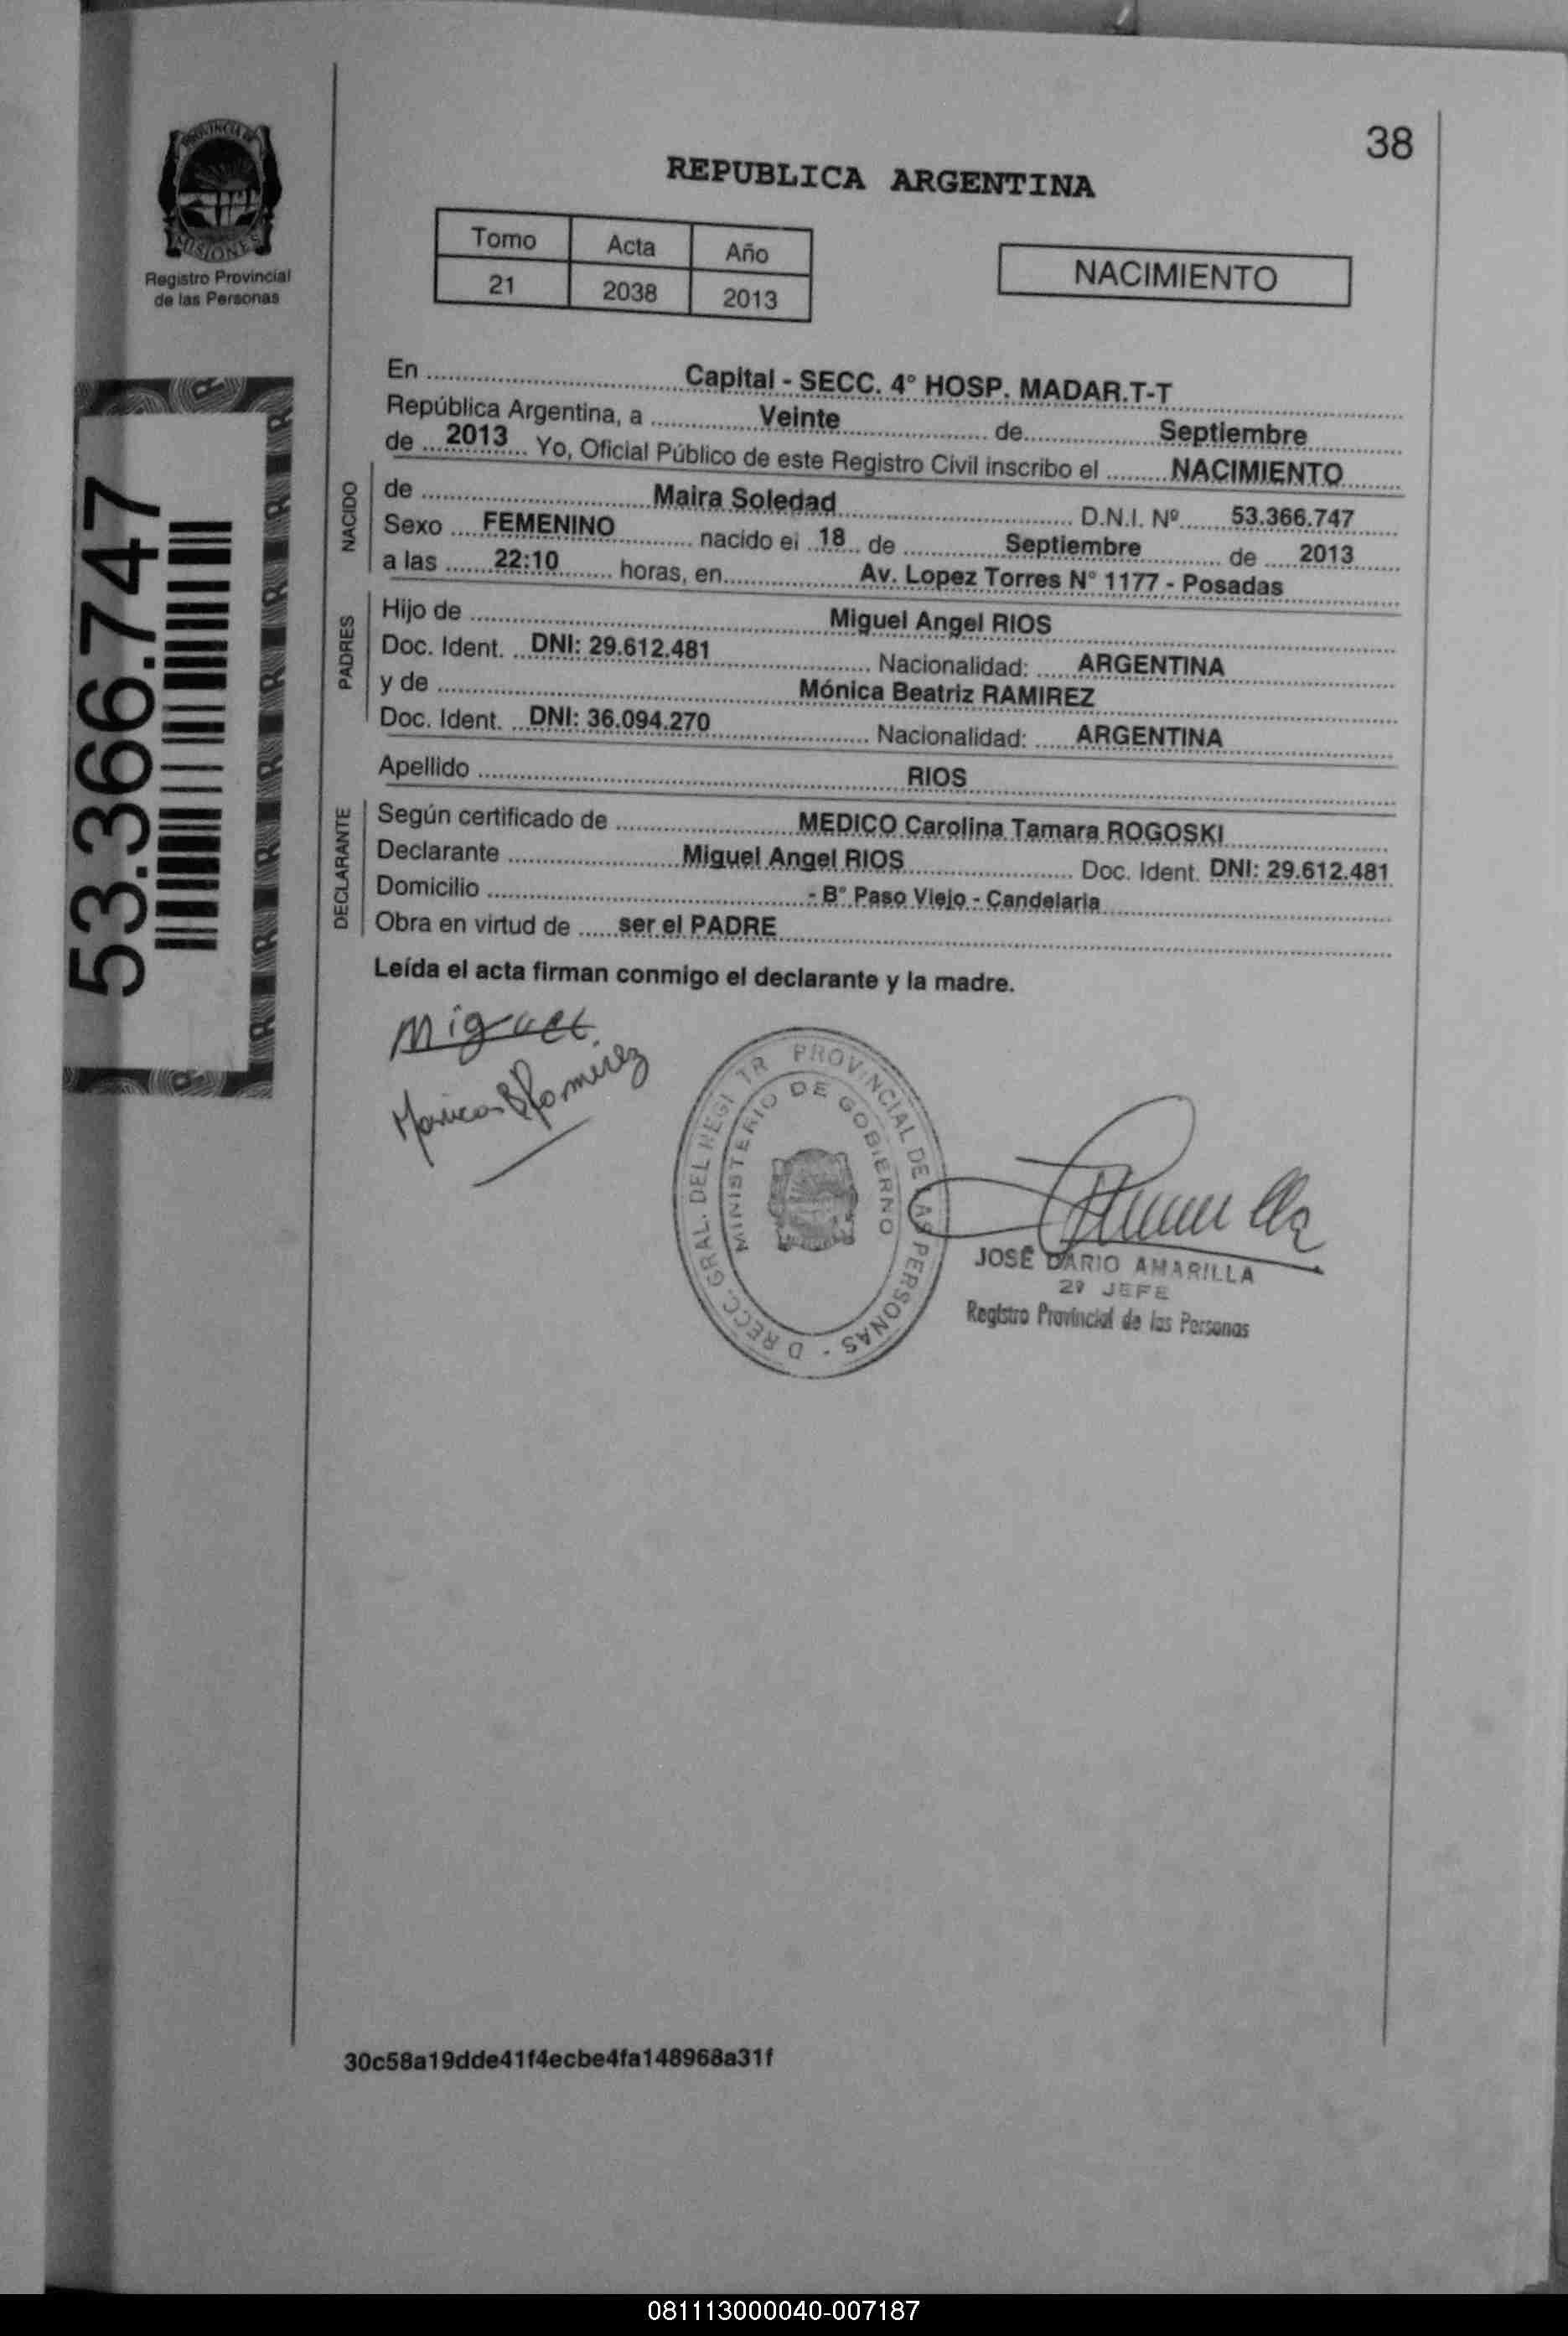 38
PROVINCIA DE
MISIONES
Registro Provincial
de las Personas
REPUBLICA ARGENTINA
Tomo Acta Año
21 2038 2013
NACIMIENTO
53.366.747
En Capital - SECC. 4° HOSP. MADAR.T-T
República Argentina, a Veinte de Septiembre
de 2013 Yo, Oficial Público de este Registro Civil inscribo el NACIMIENTO
NACIDO
de Maira Soledad D.N.I. Nº 53.366.747
Sexo FEMENINO nacido el 18 de Septiembre de 2013
a las 22:10 horas, en Av. Lopez Torres N° 1177 - Posadas
PADRES
Hijo de Miguel Angel RIOS
Doc. Ident. DNI: 29.612.481 Nacionalidad: ARGENTINA
y de Mónica Beatriz RAMIREZ
Doc. Ident. DNI: 36.094.270 Nacionalidad: ARGENTINA
Apellido RIOS
DECLARANTE
Según certificado de MEDICO Carolina Tamara ROGOSKI
Declarante Miguel Angel RIOS Doc. Ident. DNI: 29.612.481
Domicilio - B° Paso Viejo - Candelaria
Obra en virtud de ser el PADRE
Leída el acta firman conmigo el declarante y la madre.
Miguel
Ramirez
D RECC. GRAL. DEL REGI TR PROVINCIAL DE LAS PERSONAS -
MINISTERIO DE GOBIERNO
JOSÉ DARIO AMARILLA
2º JEFE
Registro Provincial de las Personas
30c58a19dde41f4ecbe4fa148968a31f
081113000040-007187